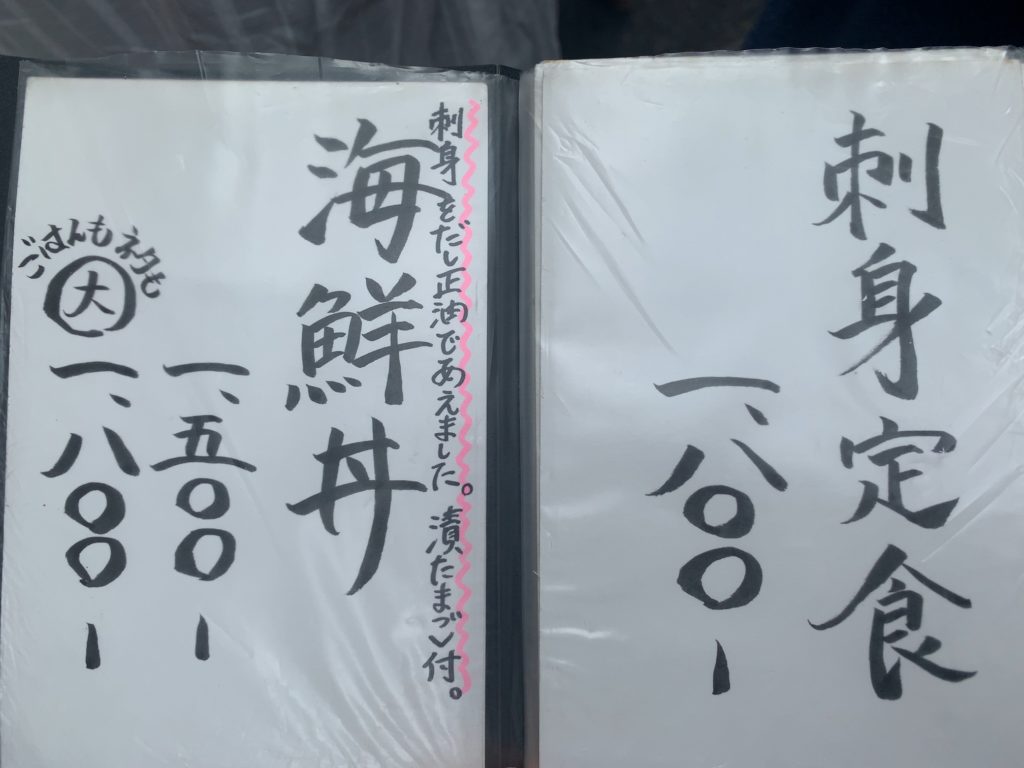 刺身定食
一、八〇〇ー
刺身をだし正油であえました。漬たまご付。
海鮮丼
一、五〇〇ー
ごはんもネタも
大
一、八〇〇ー